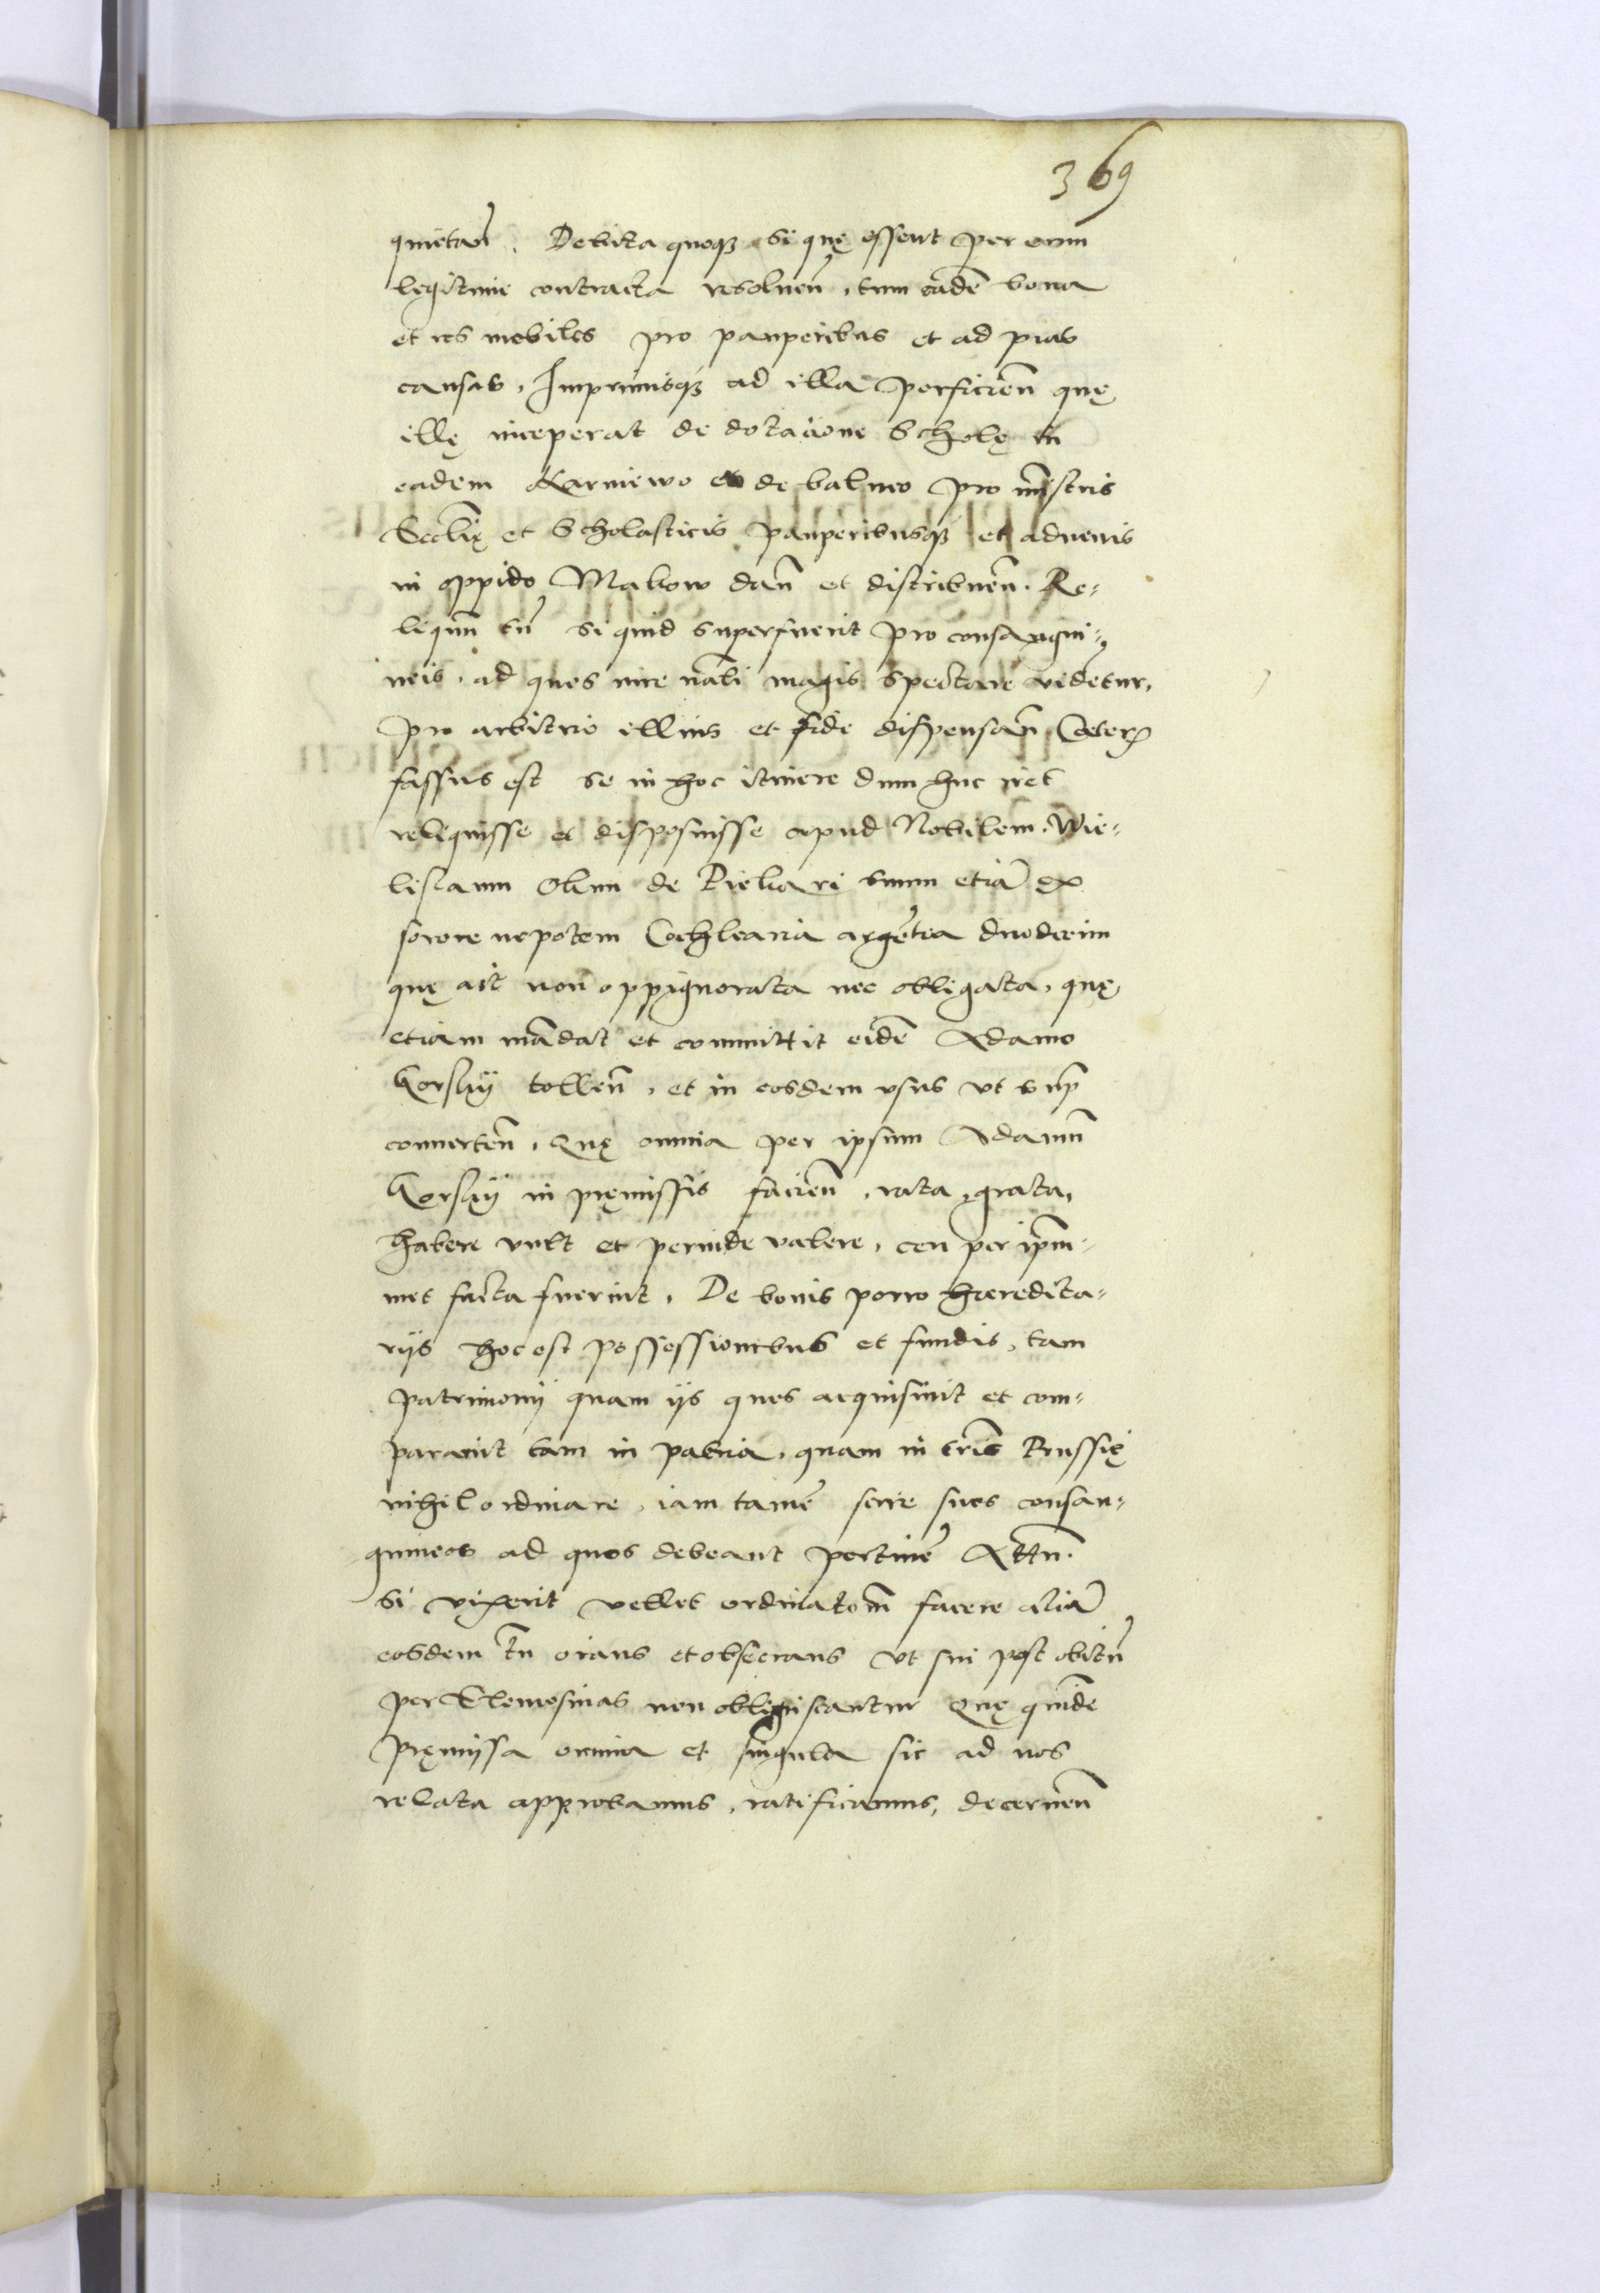 369
quietan̄. Debita quoqꝫ si quę essent per eum
legitime contracta resoluen̄, tum eadē bona
et res mobiles pro pauperibus et ad pias
causas, Imprimisqꝫ ad illa perficien̄ quę
ille inceperat de dotacione Scholę in
eadem Karniewo et de balneo pro mīstris
Eccl̄ię et Scholasticis pauperibusqꝫ et aduenis
in oppido Makow dan̄ et distribuen̄. Re-
liquū tn̄ si quid superfuerit pro consangui-
neis, ad quos iure nāli magis spectare videtur,
pro arbitrio illius et fide dispensan̄ Ceterꝝ
fassus est se in hoc itinere dum huc iret
reliquisse et disposuisse apud Nobilem Wie-
liscaum Olim de Piekari unum etiā ex
sorore nepotem Cochlearia argētea duodecim
quę ait non oppignorata nec obligata, quę
etiam mādat et committit eidē Adamo
Gorskij tollen̄, et in eosdem vsus vt sup̄
conuerten̄, Quę omnia per ipsum Adamū
Gorskij in pręmissis facien̄, rata, grata,
habere vult et perinde valere, ceu per ip̄m-
met facta fuerint. De bonis porro hæredita-
rijs hoc est possessionibus et fundis, tam
patrimonij quam ijs quos acquisiuit et com-
parauit tam in patria, quam in tr̄is Prussię
nihil ordinare, iam tamē scire suos consan-
guineos ad quos debeant pertinē Att̄n.
si vixerit vellet ordinatōm̄ facere aliā
eosdem tn̄ orans et obsecrans vt sui post obitū
per Elemosinas non obliuiscantur Quę quidē
pręmissa omnia et singula sic ad nos
relata approbamus, ratificamus, decernen̄